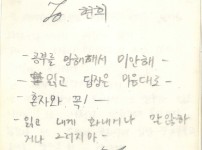 To 현희
- 공부를 안해서 미안해 -
- 읽고 답장은 마음대로 -
- 혼자와 꼭! -
- 읽고 내게 화내거나 각양하
거나 그러지마 -